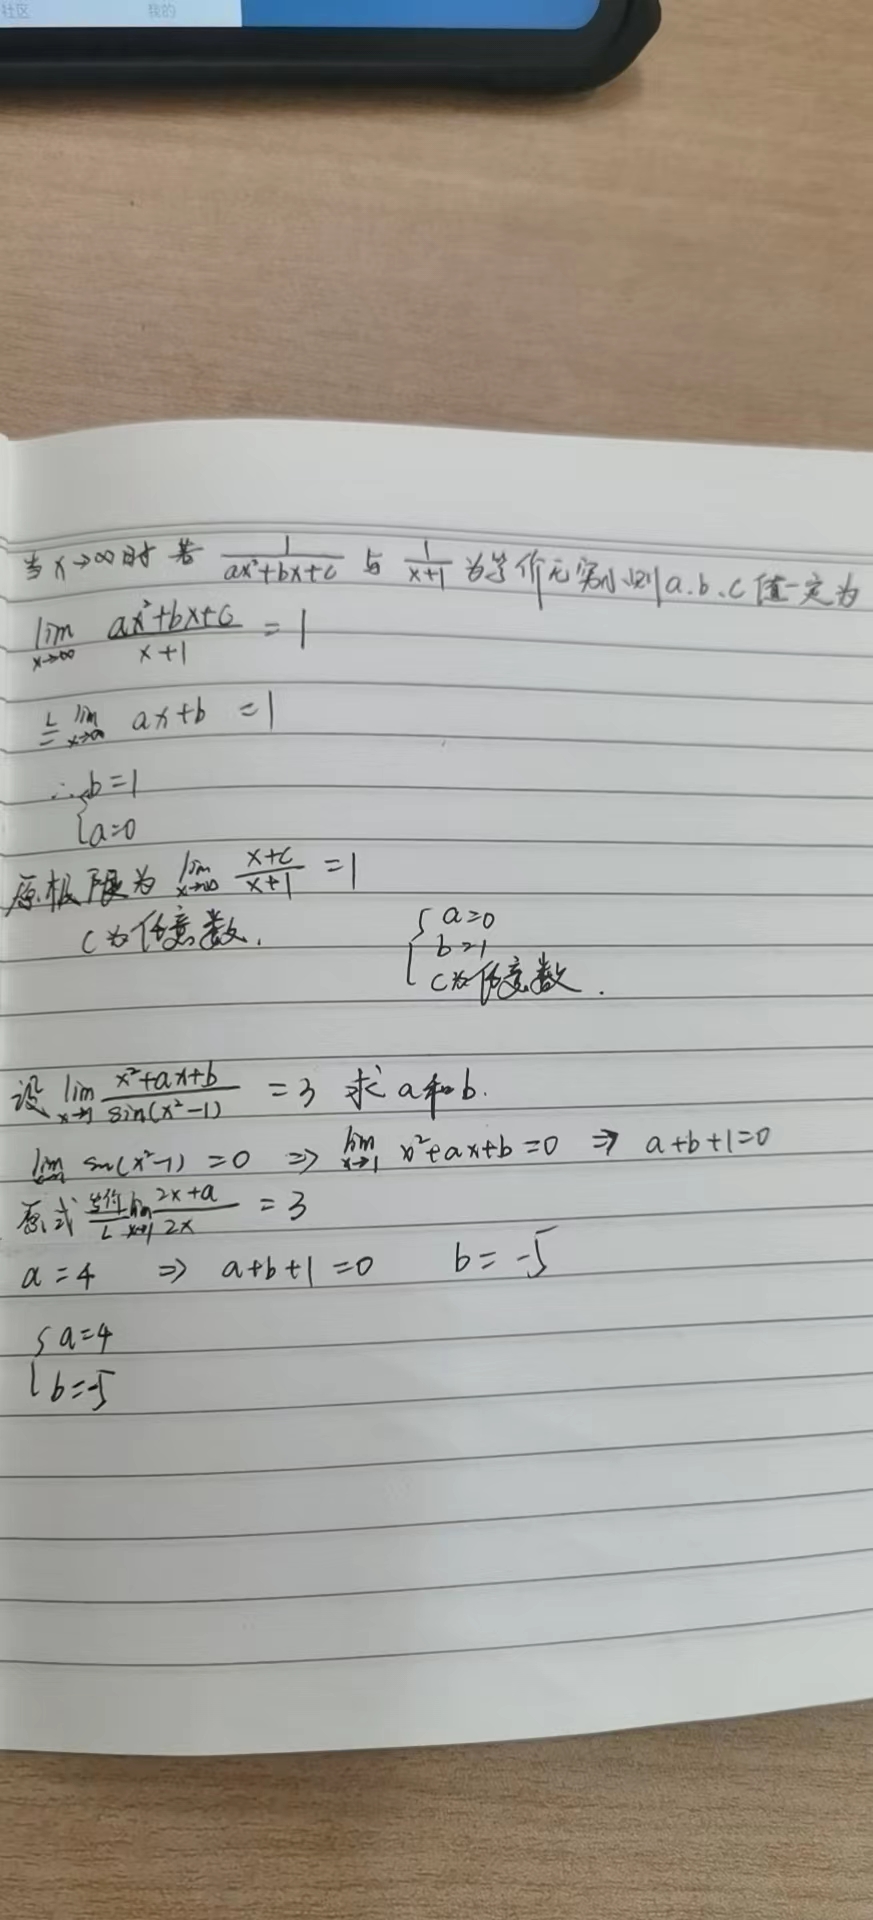 社区 我的
当 x→∞时 若 1/(ax²+bx+c) 与 1/(x+1) 为等价无穷小 则 a、b、c 值一定为
lim x→∞ (ax²+bx+c)/(x+1) = 1
L= lim x→∞ ax+b = 1
∴ { b=1
a=0
原极限为 lim x→∞ (x+c)/(x+1) = 1
c为任意数.
{ a=0
b=1
c为任意数.
设 lim x→1 (x²+ax+b)/sin(x²-1) = 3 求 a和b.
lim sin(x²-1) = 0 ⇒ lim x→1 x²+ax+b=0 ⇒ a+b+1=0
原式 等价/L lim x→1 (2x+a)/2x = 3
a=4 ⇒ a+b+1=0 b=-5
{ a=4
b=-5